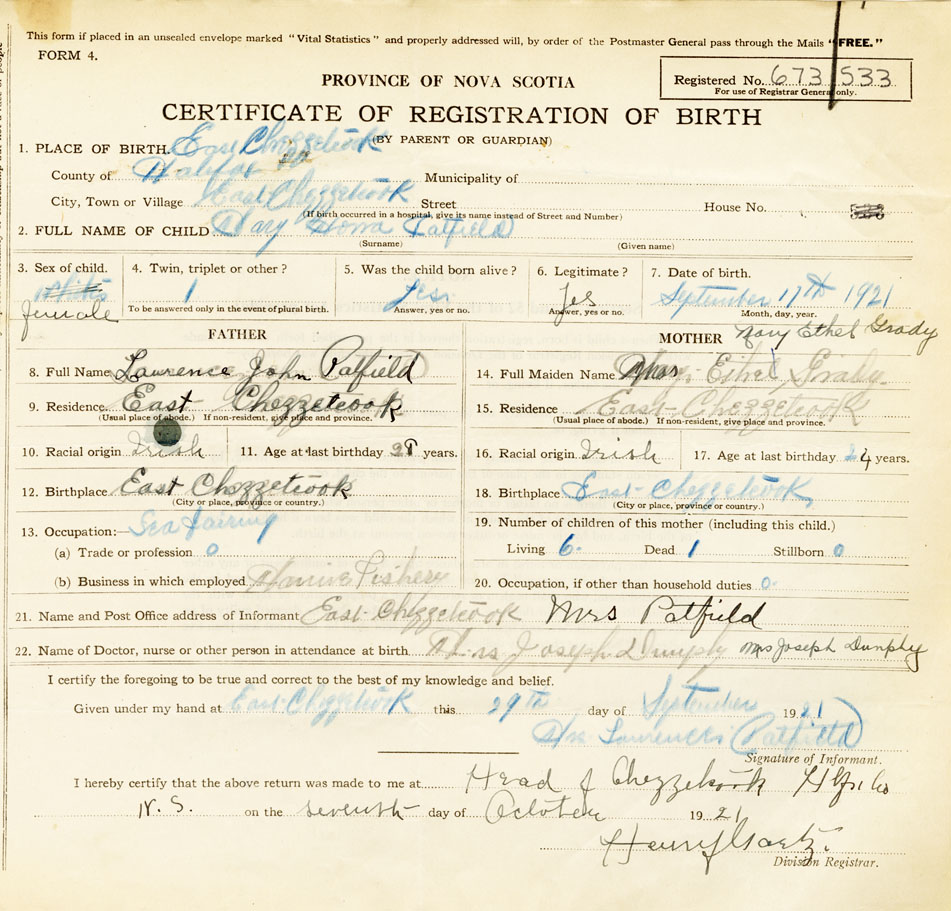 This form if placed in an unsealed envelope marked "Vital Statistics" and properly addressed will, by order of the Postmaster General pass through the Mails "FREE."
FORM 4.
PROVINCE OF NOVA SCOTIA
Registered No. 673533
For use of Registrar General only.
CERTIFICATE OF REGISTRATION OF BIRTH
(BY PARENT OR GUARDIAN)
1. PLACE OF BIRTH. East Chezzetcook
County of Halifax Municipality of
City, Town or Village East Chezzetcook Street House No.
(If birth occurred in a hospital, give its name instead of Street and Number)
2. FULL NAME OF CHILD Mary Patfield
(Surname) (Given name)
3. Sex of child. 4. Twin, triplet or other? 5. Was the child born alive? 6. Legitimate? 7. Date of birth.
female 1 yes Yes September 17th 1921
To be answered only in the event of plural birth. Answer, yes or no. Answer, yes or no. Month, day, year.
FATHER MOTHER Mary Ethel Grady
8. Full Name Lawrence John Patfield 14. Full Maiden Name Ethel Grady
9. Residence East Chezzetcook 15. Residence East Chezzetcook
(Usual place of abode.) If non-resident, give place and province. (Usual place of abode.) If non-resident, give place and province.
10. Racial origin Irish 11. Age at last birthday years. 16. Racial origin Irish 17. Age at last birthday years.
12. Birthplace East Chezzetcook 18. Birthplace East Chezzetcook
(City or place, province or country.) (City or place, province or country.)
13. Occupation:— Sea fairing 19. Number of children of this mother (including this child.)
(a) Trade or profession 0 Living 6 Dead 1 Stillborn 0
(b) Business in which employed 20. Occupation, if other than household duties 0
21. Name and Post Office address of Informant East Chezzetcook Mrs Patfield
22. Name of Doctor, nurse or other person in attendance at birth Mrs Joseph Dunphy Mrs Joseph Dunphy
I certify the foregoing to be true and correct to the best of my knowledge and belief.
Given under my hand at East Chezzetcook this 29th day of September 1921
Mrs Patfield
Signature of Informant.
I hereby certify that the above return was made to me at Head of Chezzetcook Hfx Co
N. S. on the seventh day of October 1921
Division Registrar.